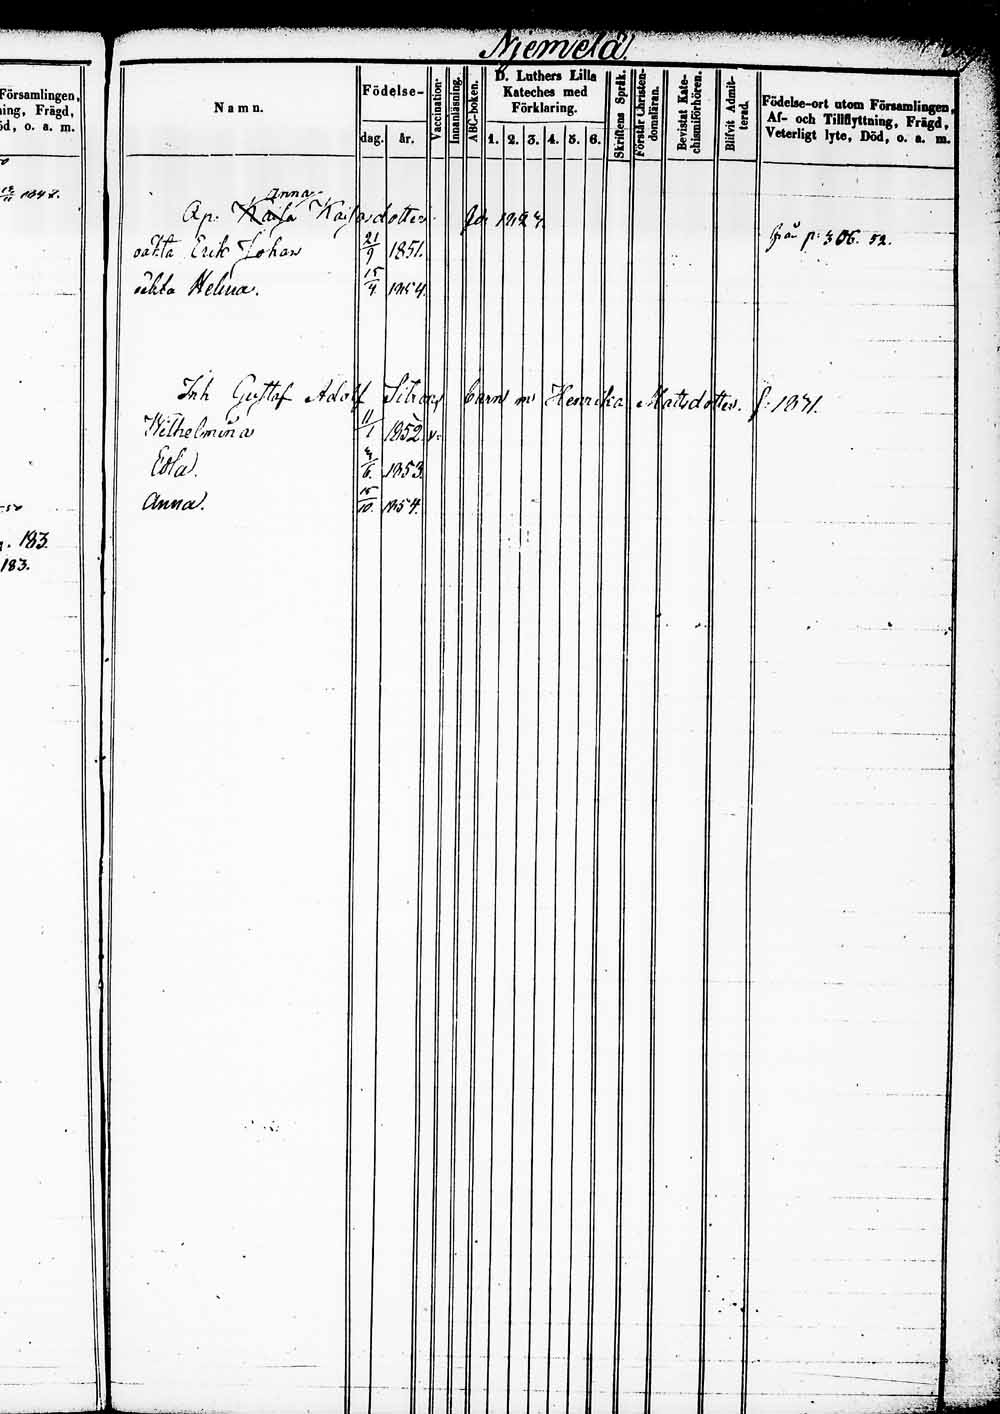 Njemelä
Församlingen,
ning, Frägd,
öd, o. a. m.
1848.
183.
183.
Namn.
Födelse-
dag. år.
Vaccination.
Innanläsning.
ABC-boken.
D. Luthers Lilla
Kateches med
Förklaring.
1. 2. 3. 4. 5. 6.
Skriftens Språk.
Förstår Christen-
domsläran.
Bevistat Kate-
chismiförhören.
Blifvit Admit-
terad.
Födelse-ort utom Församlingen,
Af- och Tillflyttning, Frägd,
Veterligt lyte, Död, o. a. m.
Anna
Ap. Kaisa Kaisasdotter fd. 1827.
oäkta Erik Johan 21/9 1851. från p: 306. 52.
oäkta Helena. 15/4 1854.
Inh Gustaf Adolf barn m Henrika Matsdotter. f: 1831.
Wilhelmina 11/1 1852. v.
Eva. 6. 1853.
Anna. 15/10. 1854.